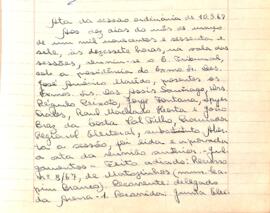 Ata da sessão ordinária de 10.3.67
Aos dez dias do mês de março
de um mil novecentos e sessenta e
sete, às dezessete horas, na sala das
sessões, reuniu-se o E. Tribunal,
sob a presidência do Exmo. Sr. Des.
José Américo Macêdo, presentes os
Exmos. Srs. Des. Assis Santiago, Drs.
Régulo Peixoto, Jorge Fontana,
Raul Machado Horta e João
Braz da Costa Val Filho, Procurador
Regional Eleitoral, substituto. Aberta
a sessão, foi lida e aprovada
a ata da reunião anterior. Jul-
gamentos - Feito adiado: Recurso
nº 8/67, de Matozinhos (mun. Ca-
pim Branco). Recorrente: delegado
da Arena-1. Recorrida: Junta Elei-